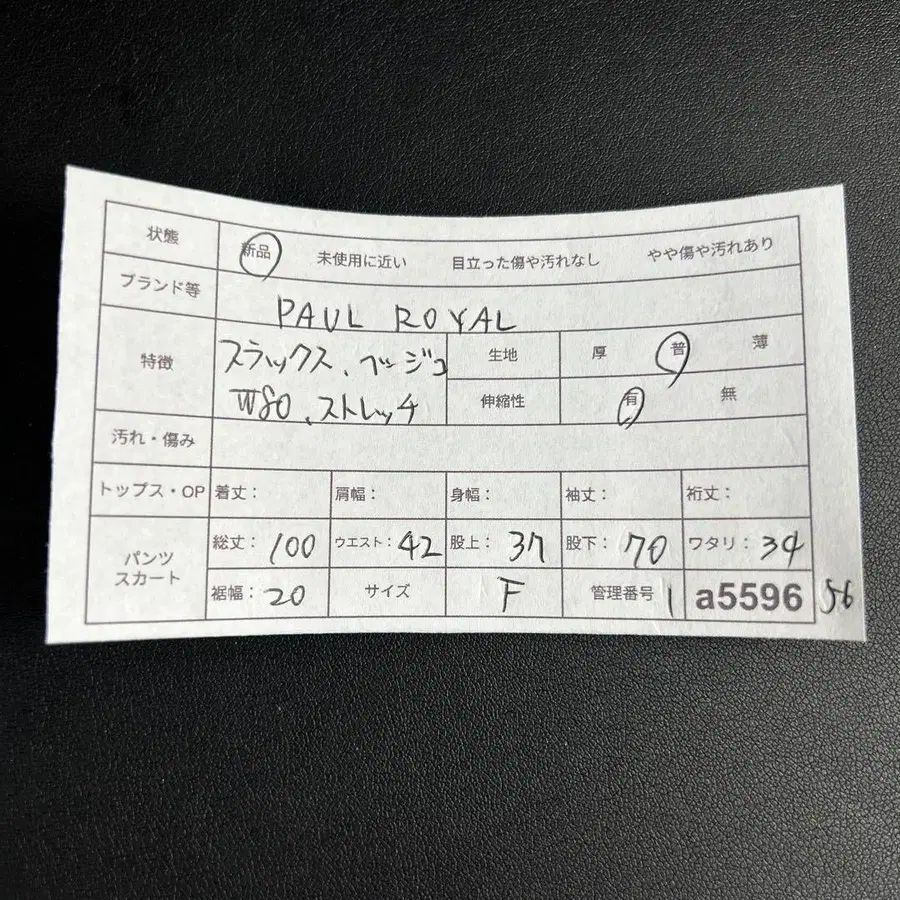 状態 新品 未使用に近い 目立った傷や汚れなし やや傷や汚れあり
ブランド等 PAUL ROYAL
特徴 スラックス、ベージュ 生地 厚 普 薄
W80、ストレッチ 伸縮性 有 無
汚れ・傷み
トップス・OP 着丈: 肩幅: 身幅: 袖丈: 裄丈:
パンツ スカート 総丈: 100 ウエスト: 42 股上: 37 股下: 70 ワタリ: 34
裾幅: 20 サイズ F 管理番号 1 a5596 56